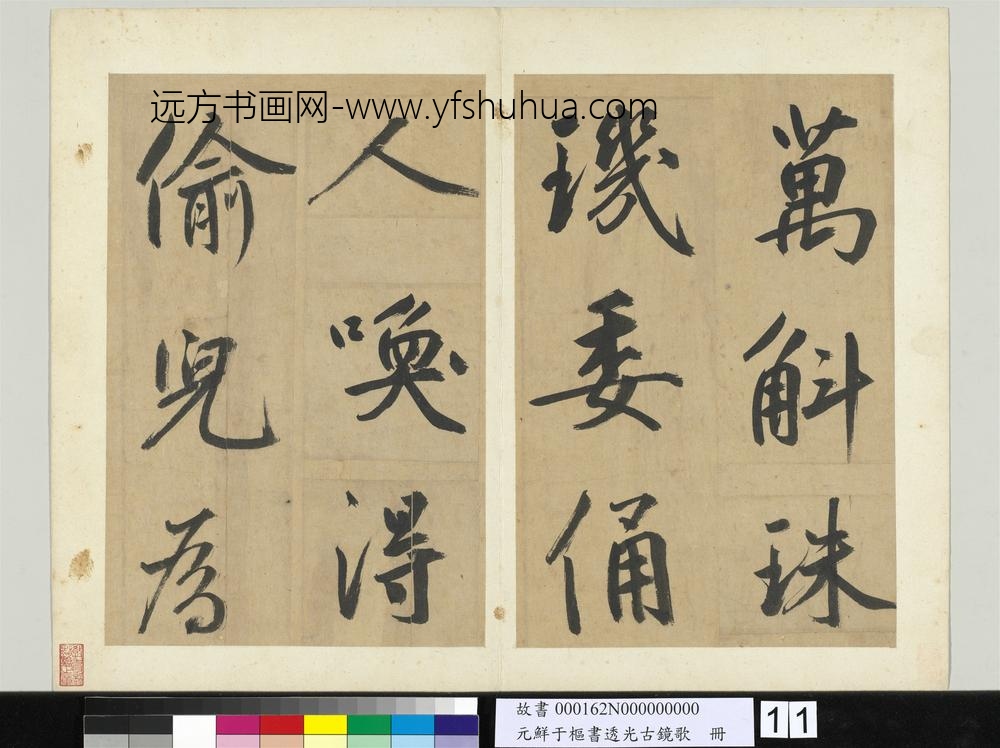 远方书画网-www.yfshuhua.com
萬斛珠
璣委俑
人喚得
偷兒為
故書 000162N000000000
元鮮于樞書透光古鏡歌 冊
11